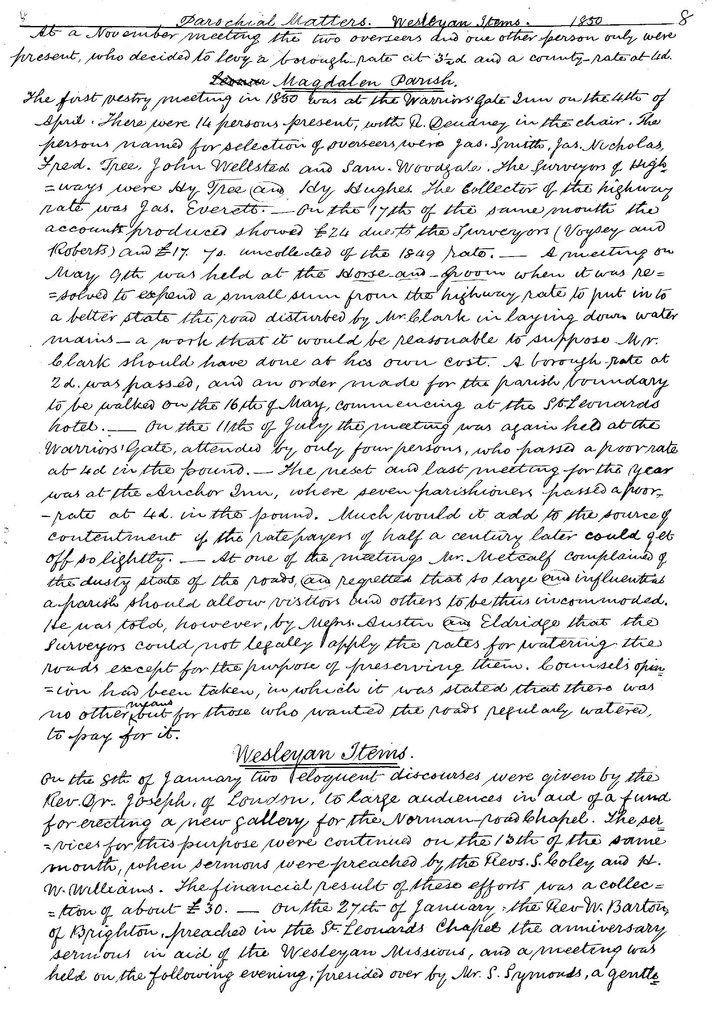 Parochial Matters. Wesleyan Items. 1850 8
At a November meeting the two overseers and one other person only were
present, who decided to levy a borough-rate at 3½d and a county-rate at 4d.
Magdalen Parish.
The first vestry meeting in 1850 was at the Warriors' Gate Inn on the 4th of
April. There were 14 persons present, with R. Deudney in the chair. The
persons named for selection of overseers were Jas. Smith, Jas. Nicholas,
Fred. Tree, John Wellsted and Sam. Woodgate. The Surveyors of High=
=ways were Hy Tree and Hy Hughes. The Collector of the highway
rate was Jas. Everett. — On the 17th of the same month the
accounts produced showed £24 due to the Surveyors (Voysey and
Roberts) and £17. 7s. uncollected of the 1849 rate. — A meeting on
May 9th was held at the Horse-and-Groom when it was re=
=solved to expend a small sum from the highway rate to put in to
a better state the road disturbed by Mr. Clark in laying down water
mains — a work that it would be reasonable to suppose Mr.
Clark should have done at his own cost. A borough-rate at
2d. was passed, and an order made for the parish boundary
to be walked on the 16th of May, commencing at the St. Leonards
hotel. — On the 11th of July the meeting was again held at the
Warriors' Gate, attended by only four persons, who passed a poor rate
at 4d in the pound. — The next and last meeting for the year
was at the Anchor Inn, where seven parishioners passed a poor-
-rate at 4d. in the pound. Much would it add to the source of
contentment if the ratepayers of half a century later could get
off so lightly. — At one of the meetings Mr. Metcalf complained of
the dusty state of the roads, and regretted that so large and influential
a parish should allow visitors and others to be thus incommoded.
He was told, however, by Messrs. Austin and Eldridge that the
Surveyors could not legally apply the rates for watering the
roads except for the purpose of preserving them. Counsel's opin=
=ion had been taken, in which it was stated that there was
no other means but for those who wanted the roads regularly watered,
to pay for it.
Wesleyan Items.
On the 8th of January two eloquent discourses were given by the
Rev. Dr. Joseph, of London, to large audiences in aid of a fund
for erecting a new gallery for the Norman-road Chapel. The ser=
=vices for this purpose were continued on the 13th of the same
month, when sermons were preached by the Revs. S. Coley and H.
W. Williams. The financial result of these efforts was a collec=
=tion of about £30. — On the 27th of January the Rev. W. Barton,
of Brighton, preached in the St. Leonards Chapel the anniversary
sermons in aid of the Wesleyan Missions, and a meeting was
held on the following evening, presided over by Mr. S. Symonds, a gentle=